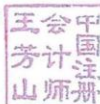 中国注册
会计师
王芳山